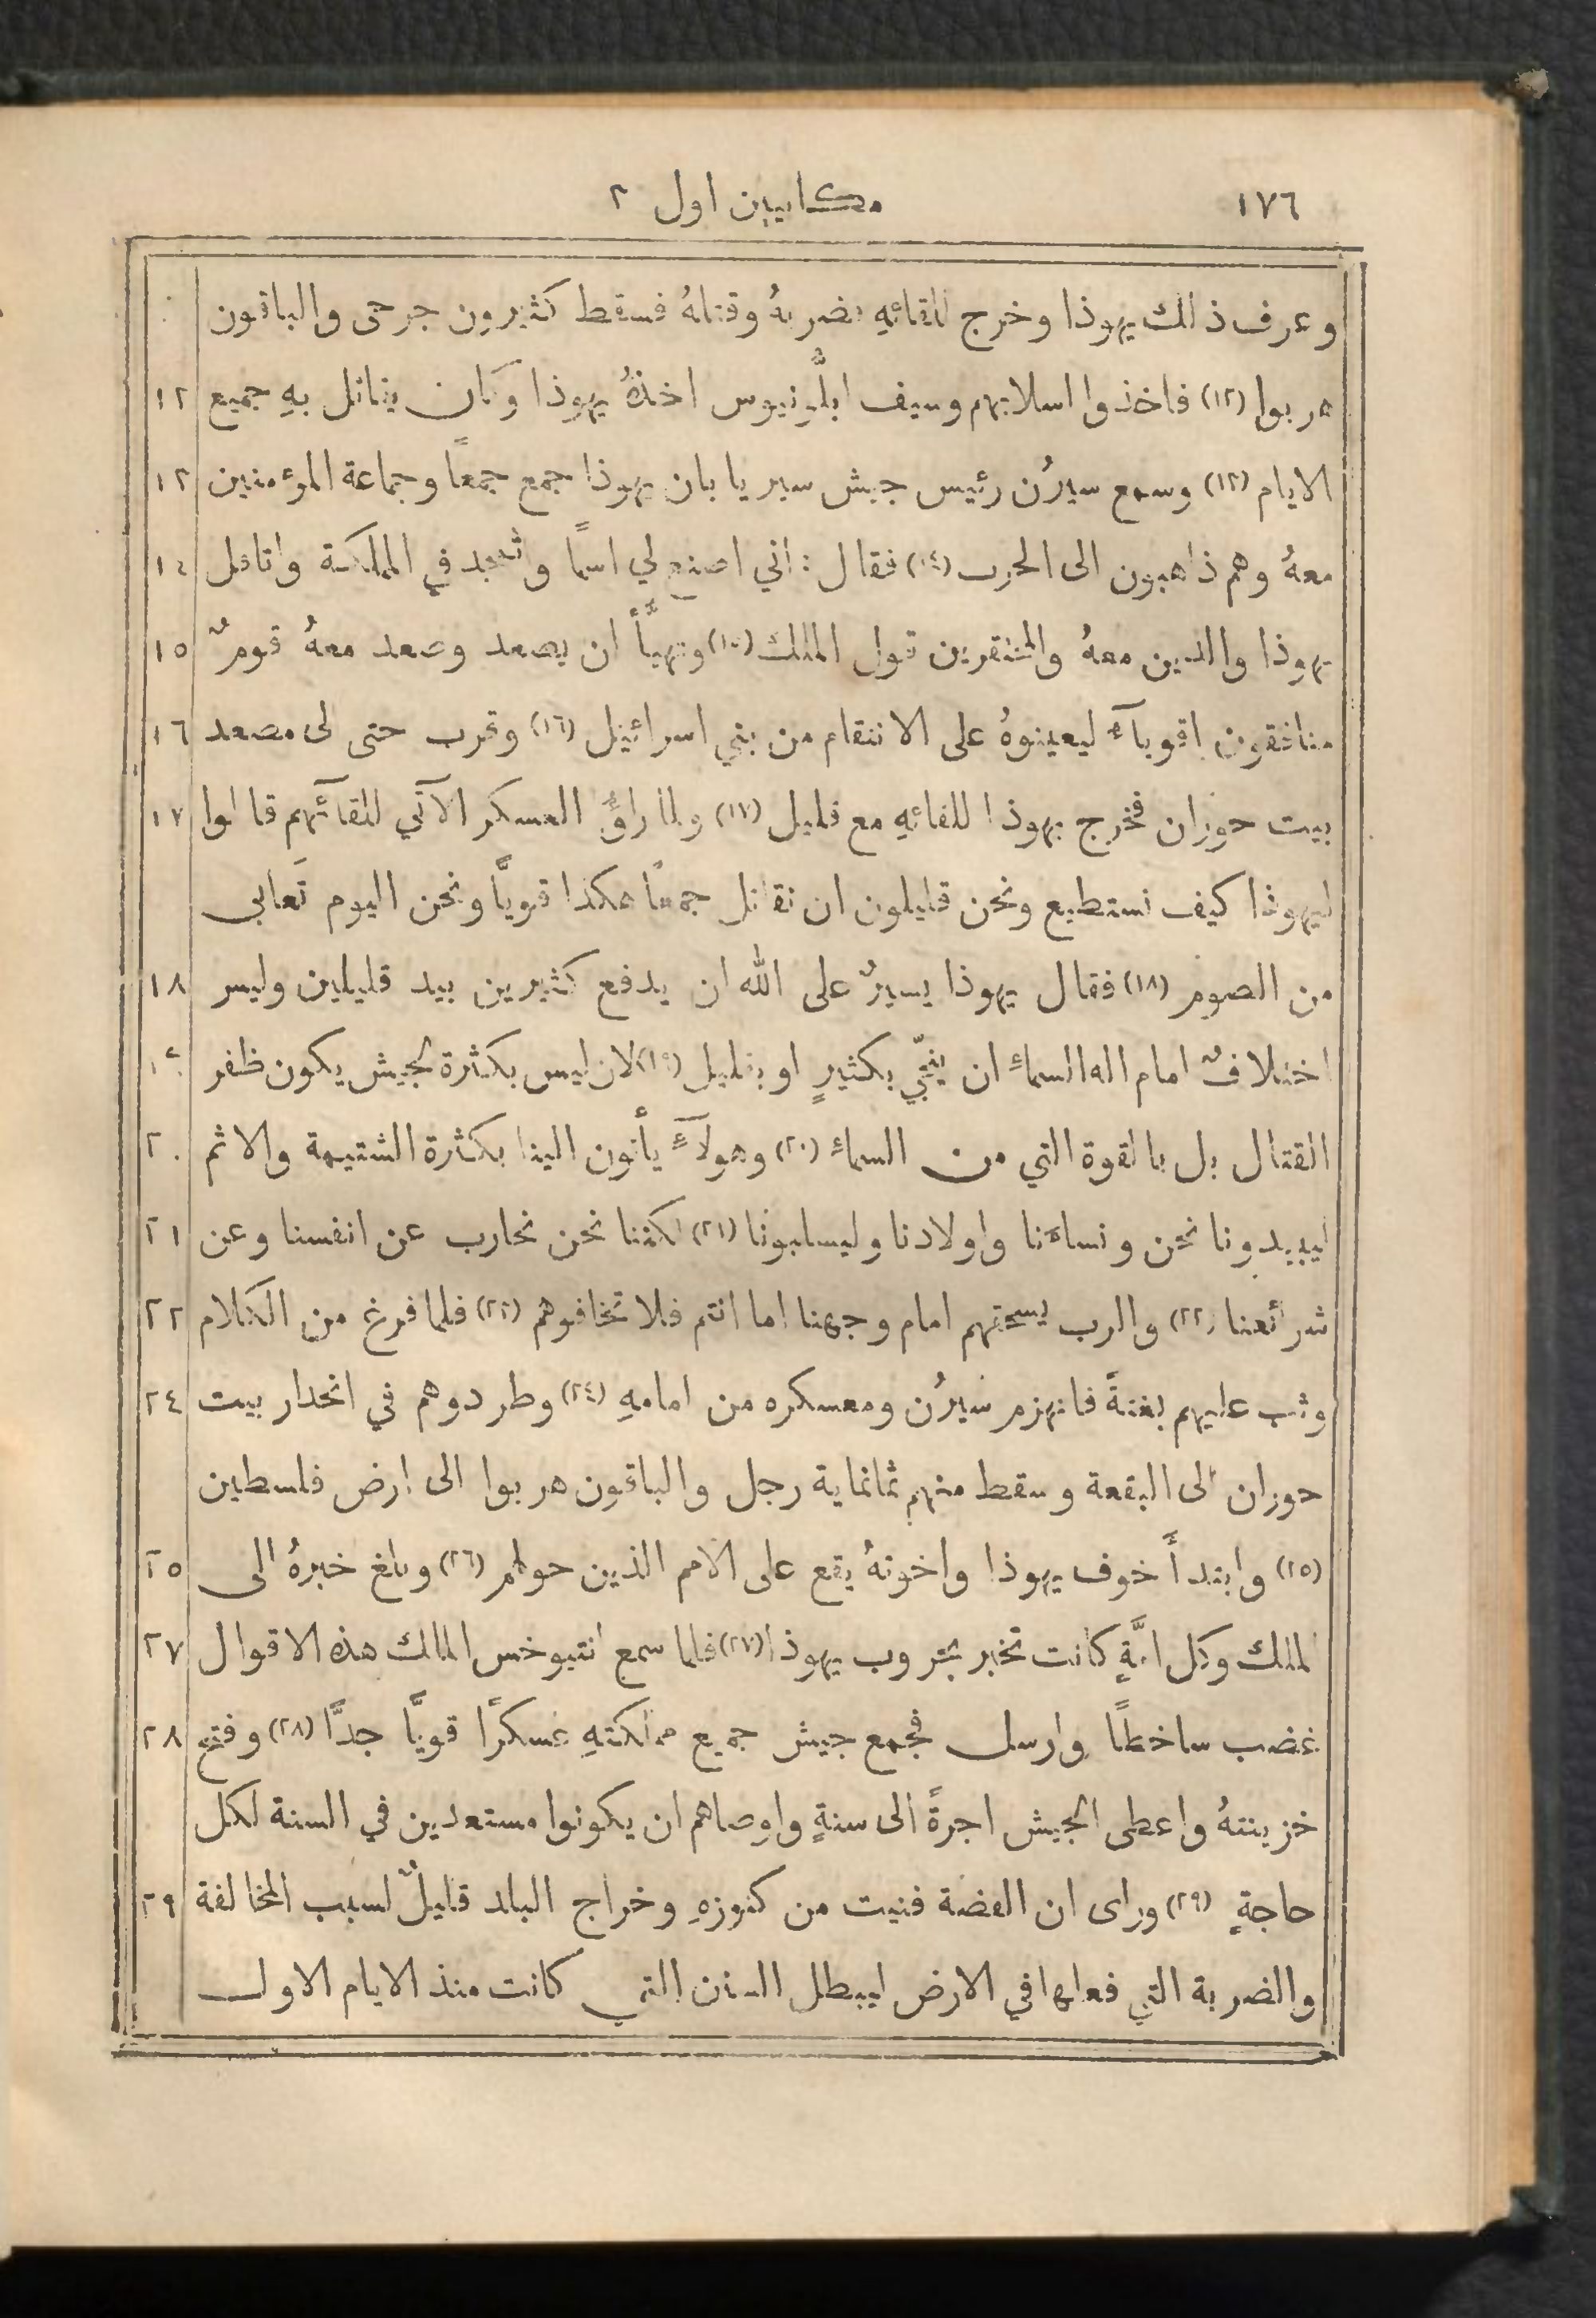 ١٧٦ مكابيين اول ٣
وعرف ذلك يهوذا وخرج للقائهِ فضربهُ وقتلهُ فسقط كثيرون جرحى والباقون
هربوا (١٢) فاخذوا اسلابهم وسيف ابلُّونيوس اخذهُ يهوذا وكان يقاتل بهِ جميع ١٢
الايام (١٣) وسمع سيرُن رئيس جيش سيريا بان يهوذا جمع جمعًا وجماعة المؤمنين ١٣
معهُ وهم ذاهبون الى الحرب (١٤) فقال : اني اصنع لي اسمًا واتمجد في المملكة واقاتل ١٤
يهوذا والذين معهُ والمحتقرين قول الملك (١٥) وتهيَّأَ ان يصعد وصعد معهُ قومٌ ١٥
منافقون اقوياءُ ليعينوهُ على الانتقام من بني اسرائيل (١٦) وقرب حتى الى مصعد ١٦
بيت حوران فخرج يهوذا للقائهِ مع قليل (١٧) ولما راوُا العسكر الآتي للقائهم قالوا ١٧
ليهوذا كيف نستطيع ونحن قليلون ان نقاتل جمعًا هكذا قويًّا ونحن اليوم تعابى
من الصوم (١٨) فقال يهوذا يسيرٌ على الله ان يدفع كثيرين بيد قليلين وليس ١٨
اختلافٌ امام اله السماءِ ان ينجّي بكثيرٍ او بقليل (١٩) لان ليس بكثرة الجيش يكون ظفر ١٩
القتال بل بالقوة التي من السماءِ (٢٠) وهولآءِ يأتون الينا بكثرة الشتيمة والاثم ٢٠
ليبيدونا نحن ونساءَنا واولادنا وليسلبونا (٢١) لكننا نحن نحارب عن انفسنا وعن ٢١
شرائعنا (٢٢) والرب يسحقهم امام وجهنا اما انتم فلا تخافوهم (٢٣) فلما فرغ من الكلام ٢٢
وثب عليهم بغتةً فانهزم سيرُن ومعسكره من امامهِ (٢٤) وطردوهم في انحدار بيت ٢٤
حوران الى البقعة وسقط منهم ثمانماية رجل والباقون هربوا الى ارض فلسطين
(٢٥) وابتدأَ خوف يهوذا واخوتهُ يقع على الامم الذين حولهم (٢٦) وبلغ خبرهُ الى ٢٥
الملك وكل امَّةٍ كانت تخبر بحروب يهوذا (٢٧) فلما سمع انتيوخس الملك هذه الاقوال ٢٧
غضب ساخطًا وارسل فجمع جيش جميع مملكتهِ عسكرًا قويًّا جدًّا (٢٨) وفتح ٢٨
خزينتهُ واعطى الجيش اجرةً الى سنةٍ واوصاهم ان يكونوا مستعدين في السنة لكل
حاجةٍ (٢٩) وراى ان الفضة فنيت من كنوزهِ وخراج البلد قليلٌ لسبب المخالفة ٢٩
والضربة التي فعلها في الارض ليبطل السنن التي كانت منذ الايام الاول